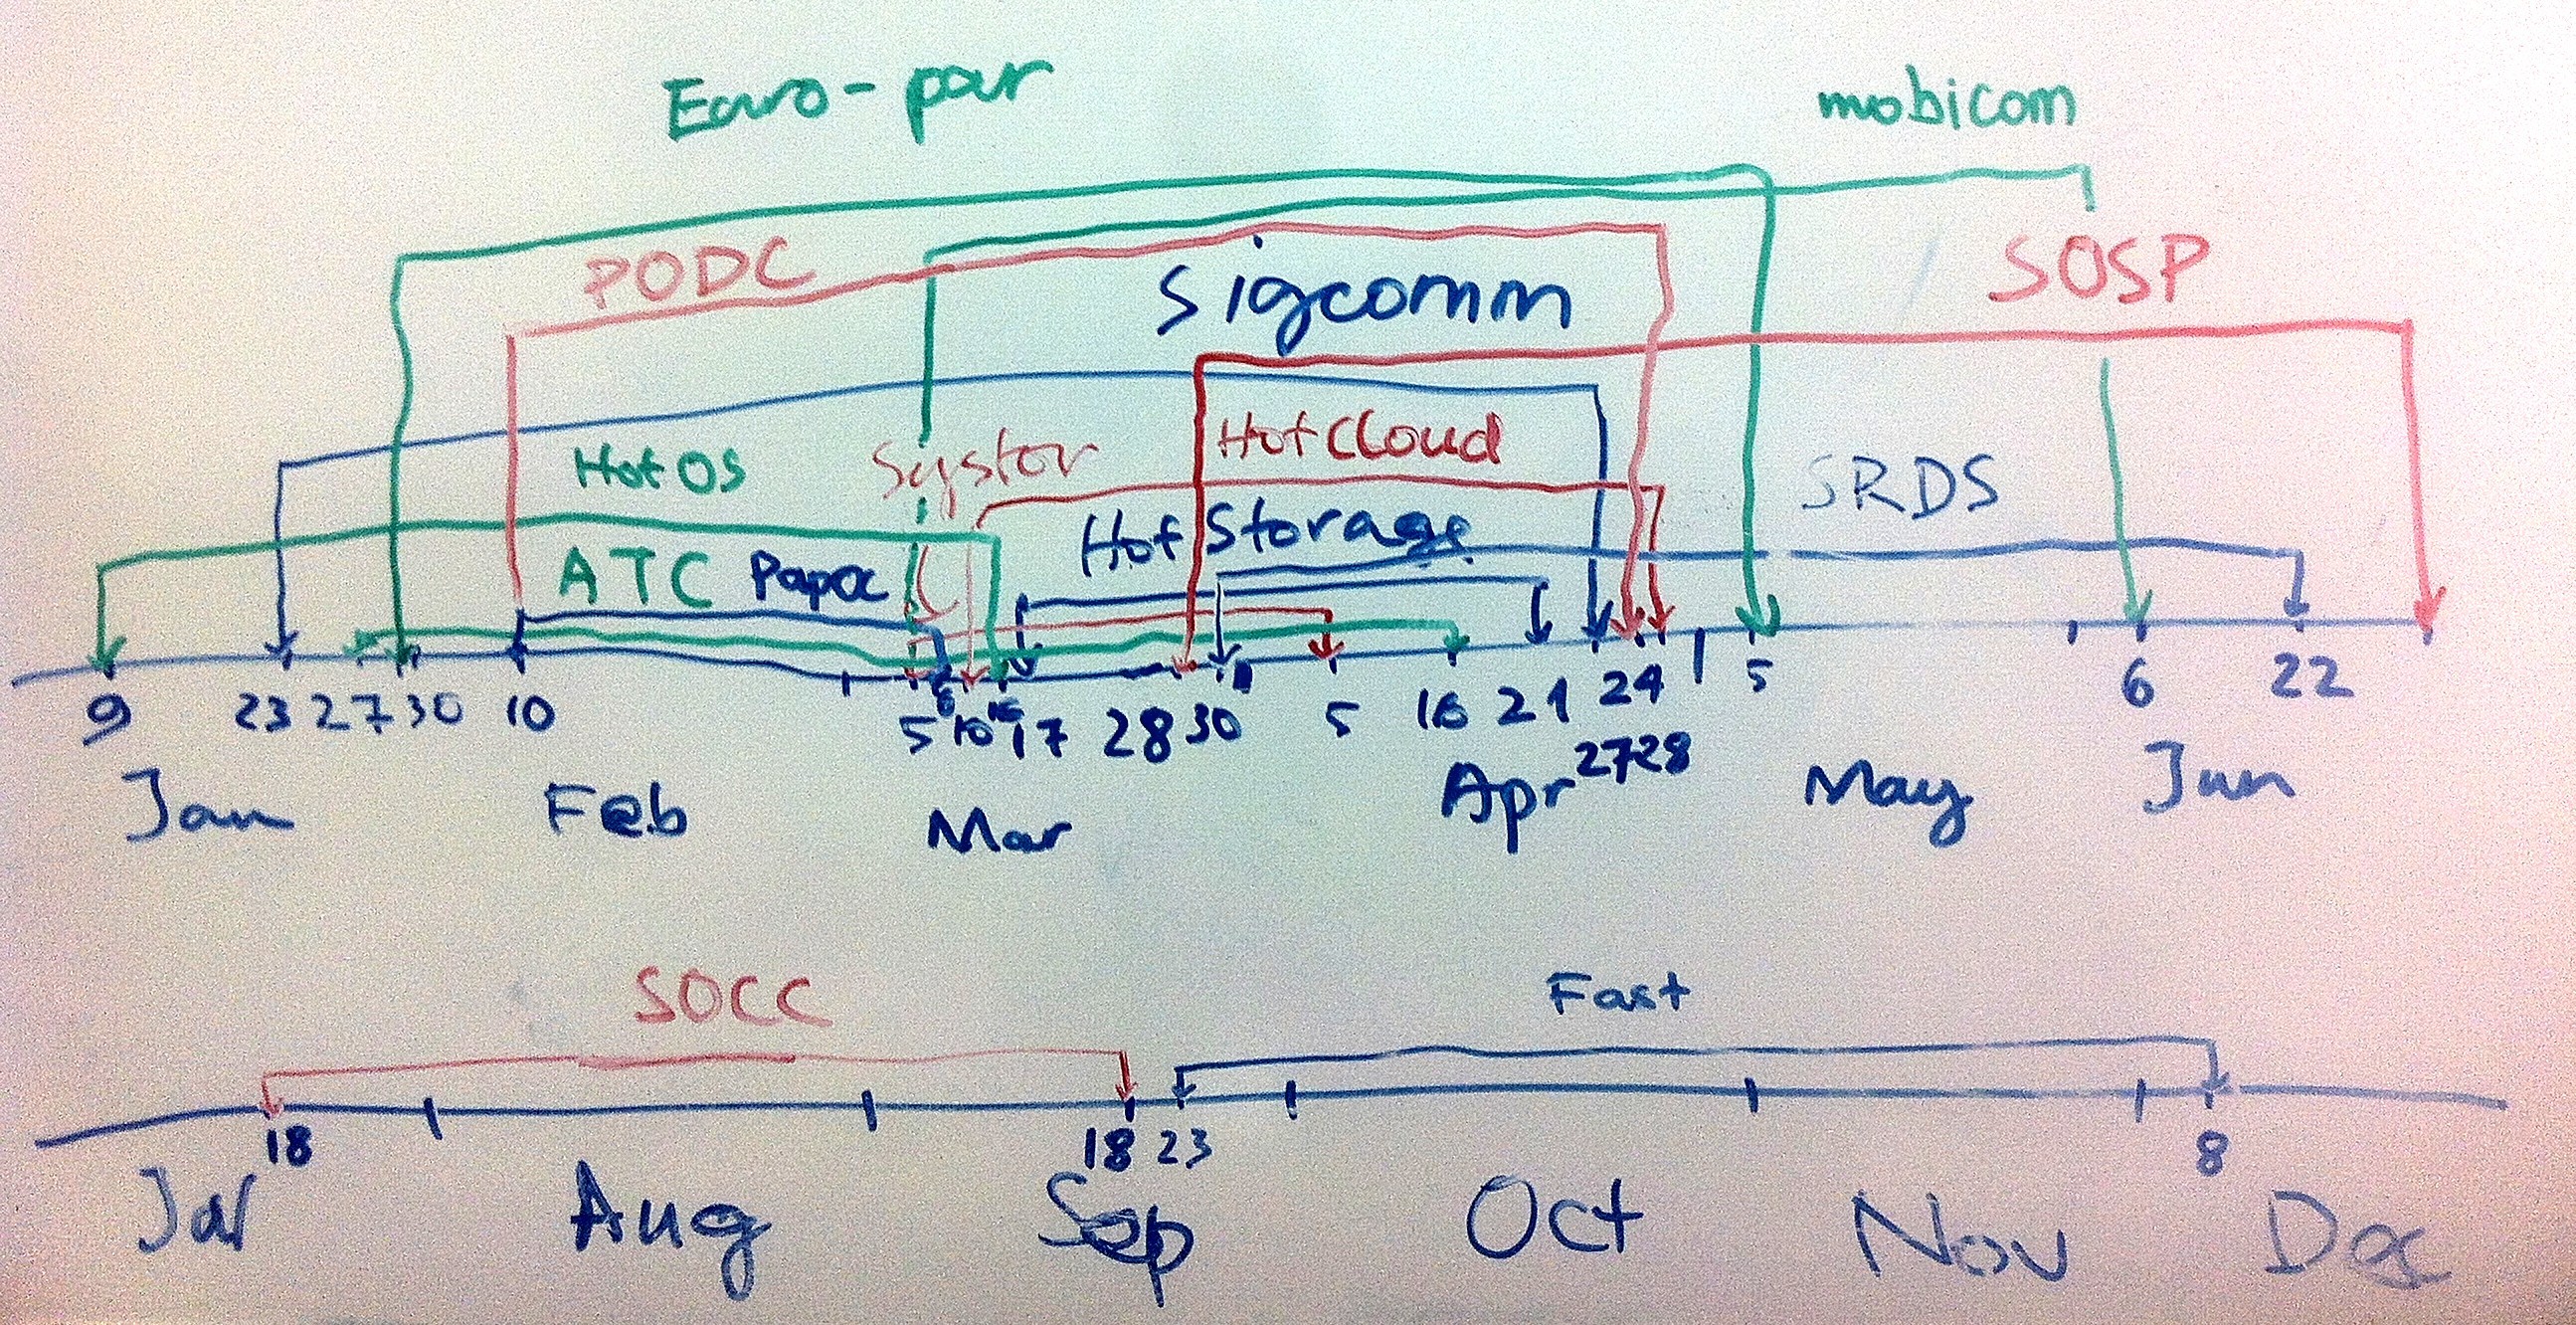 Euro-par mobicom
PODC Sigcomm SOSP
HotOS Systor HotCloud SRDS
ATC Papoc HotStorage
9 23 27 30 10 5 6 10 16 17 28 30 5 16 21 24 1 5 6 22
27 28
Jan Feb Mar Apr May Jun
SOCC Fast
18 18 23 8
Jul Aug Sep Oct Nov Dec